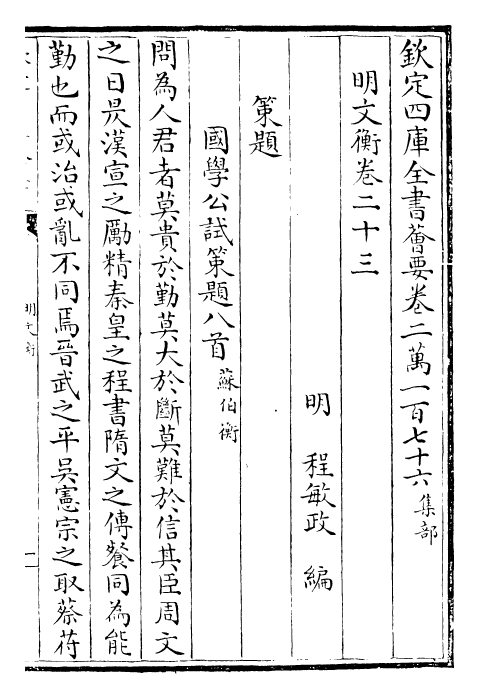 欽定四庫全書薈要卷二萬一百七十六集部
明文衡卷二十三
明 程敏政 編
策題
國學公試策題八首 蘇伯衡
問為人君者莫貴於勤莫大於斷莫難於信其臣周文
之日昃漢宣之勵精秦皇之程書隋文之傳餐同為能
勤也而或治或亂不同焉晉武之平吳憲宗之取蔡苻
明文衡